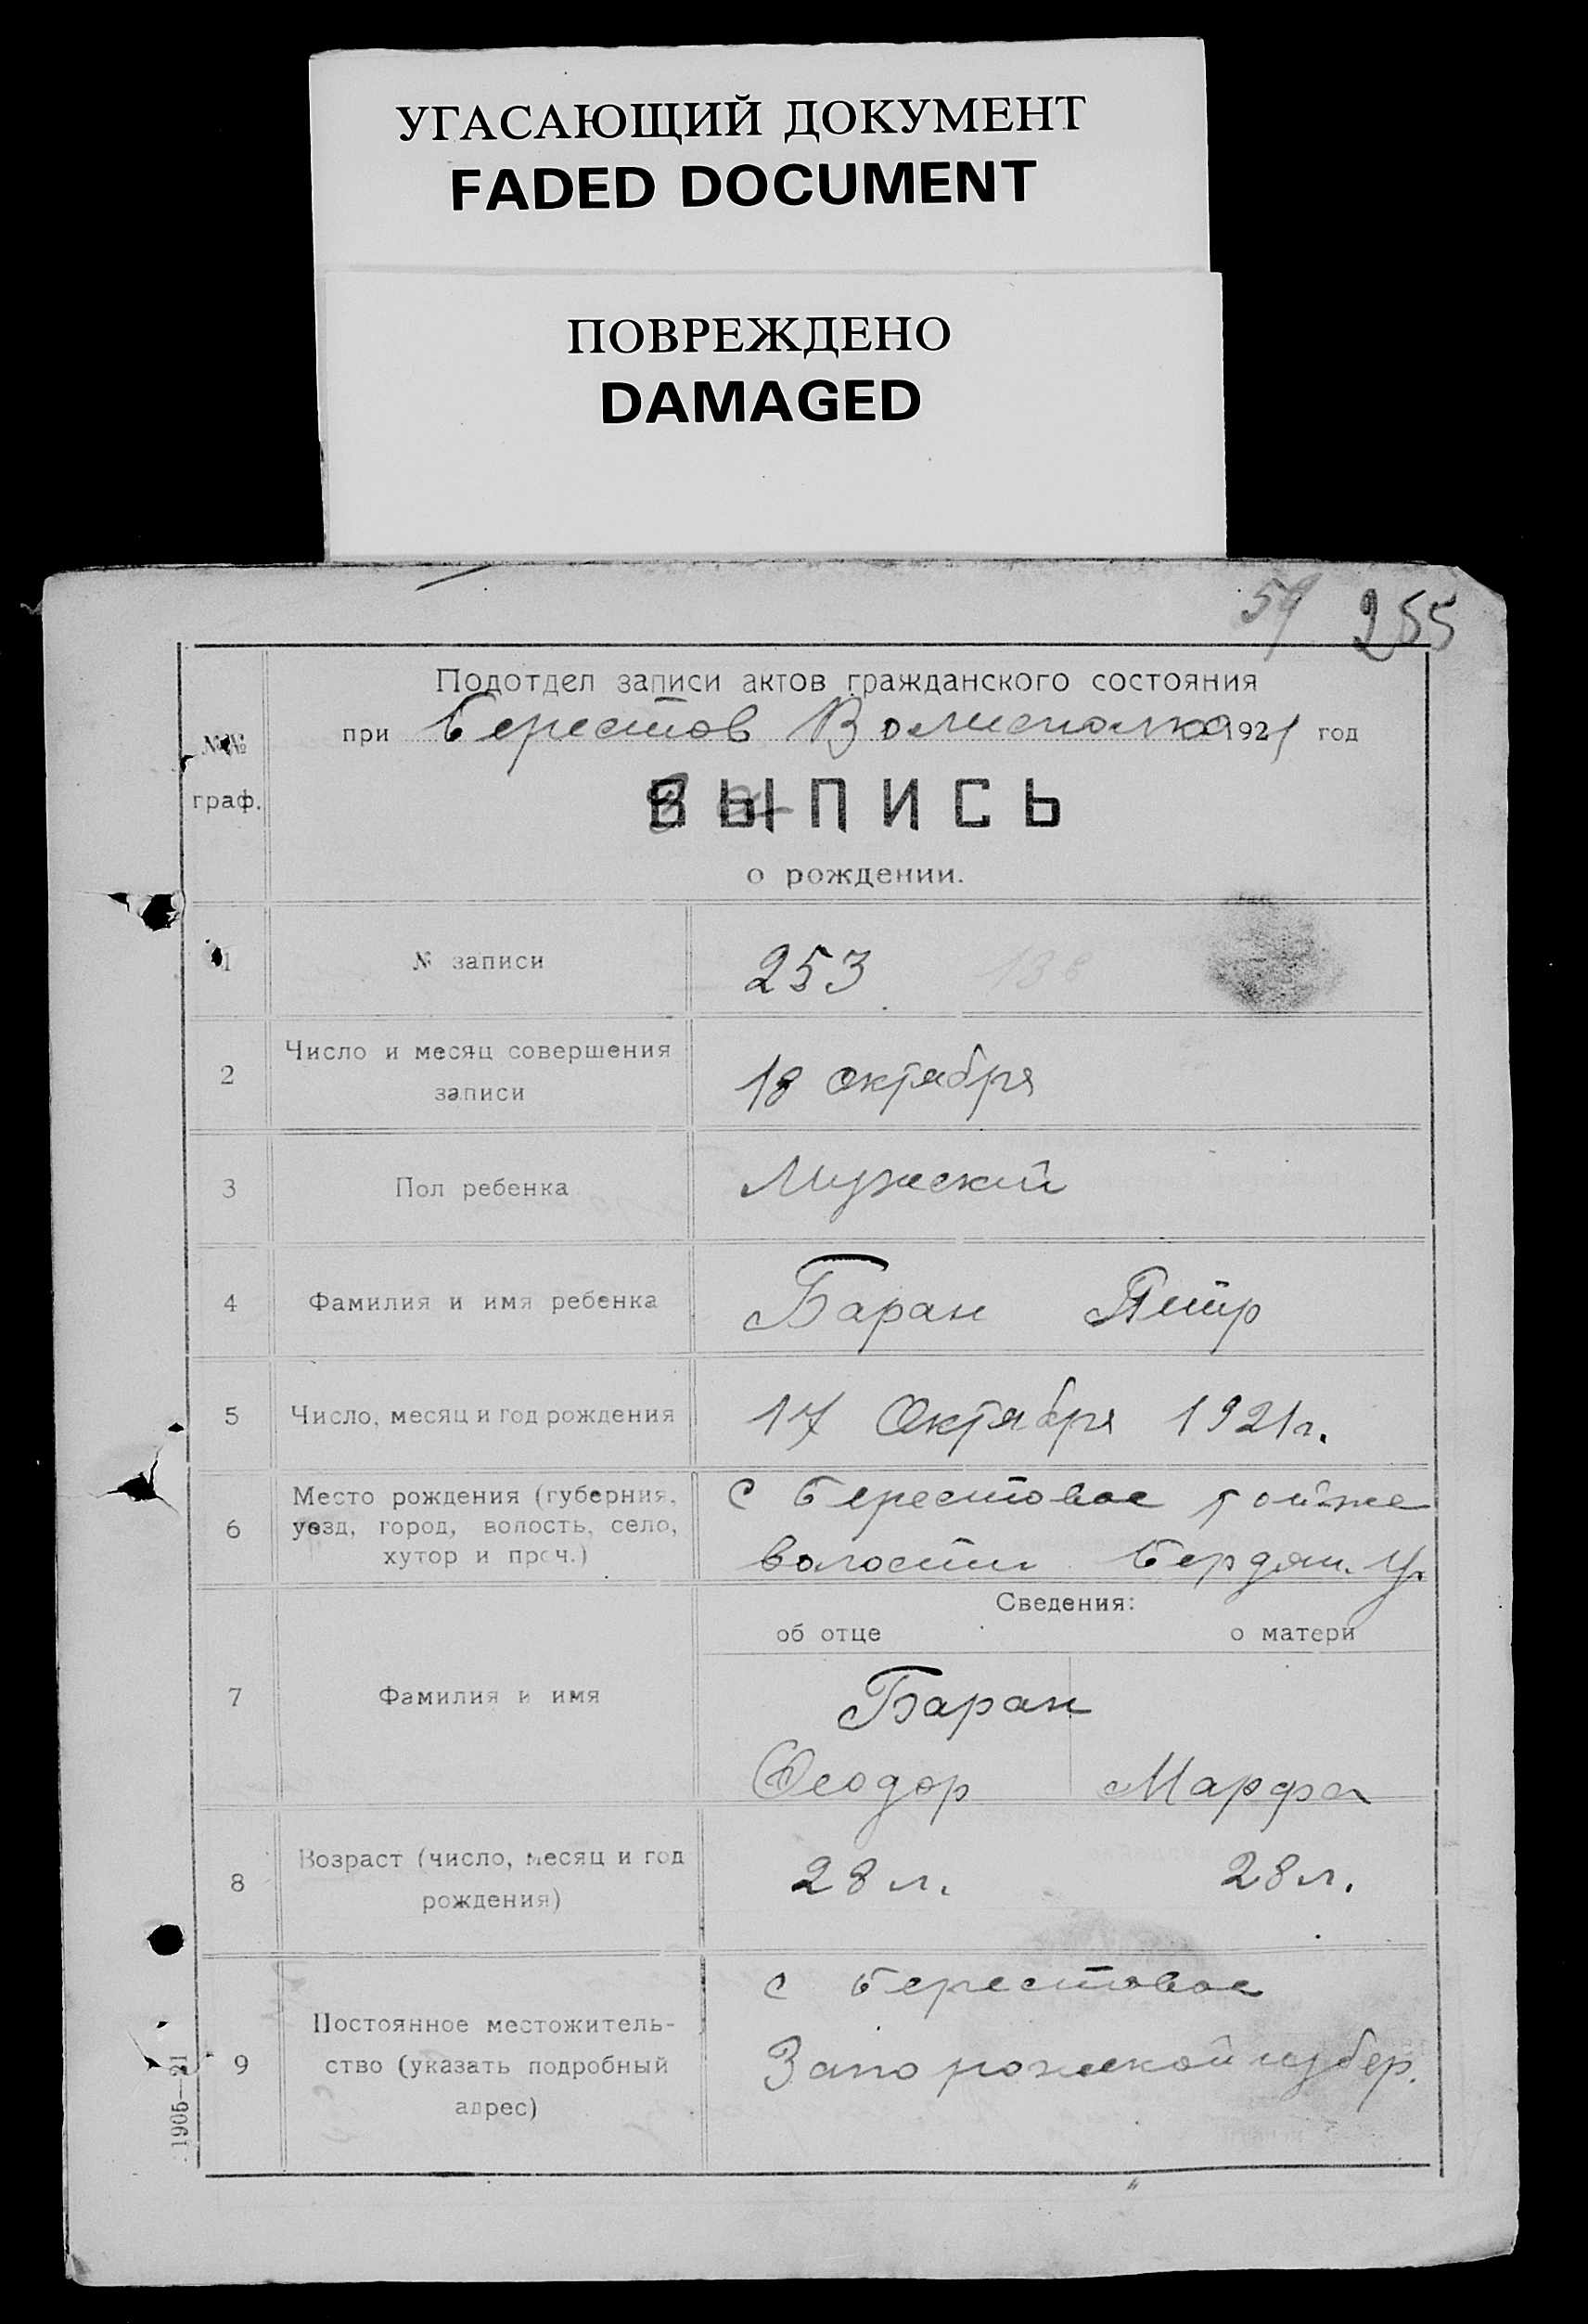 УГАСАЮЩИЙ ДОКУМЕНТ
FADED DOCUMENT
ПОВРЕЖДЕНО
DAMAGED
59 255
Подотдел записи актов гражданского состояния
при Берестов Волисполко 1921 год
№№
граф.
ВЫПИСЬ
о рождении.
1 № записи 253
2 Число и месяц совершения
записи
18 октября
3 Пол ребенка Мужеский
4 Фамилия и имя ребенка Баран Петр
5 Число, месяц и год рождения 17 Октября 1921 г.
6 Место рождения (губерния,
уезд, город, волость, село,
хутор и проч.)
с Берестовое той-же
волости Бердян. у.
Сведения:
об отце о матери
7 Фамилия и имя
Баран
Феодор Марфа
8 Возраст (число, месяц и год
рождения)
28 л. 28 л.
9 Постоянное местожитель-
ство (указать подробный
адрес)
с Берестовое
Запорожской губер.
1905—21